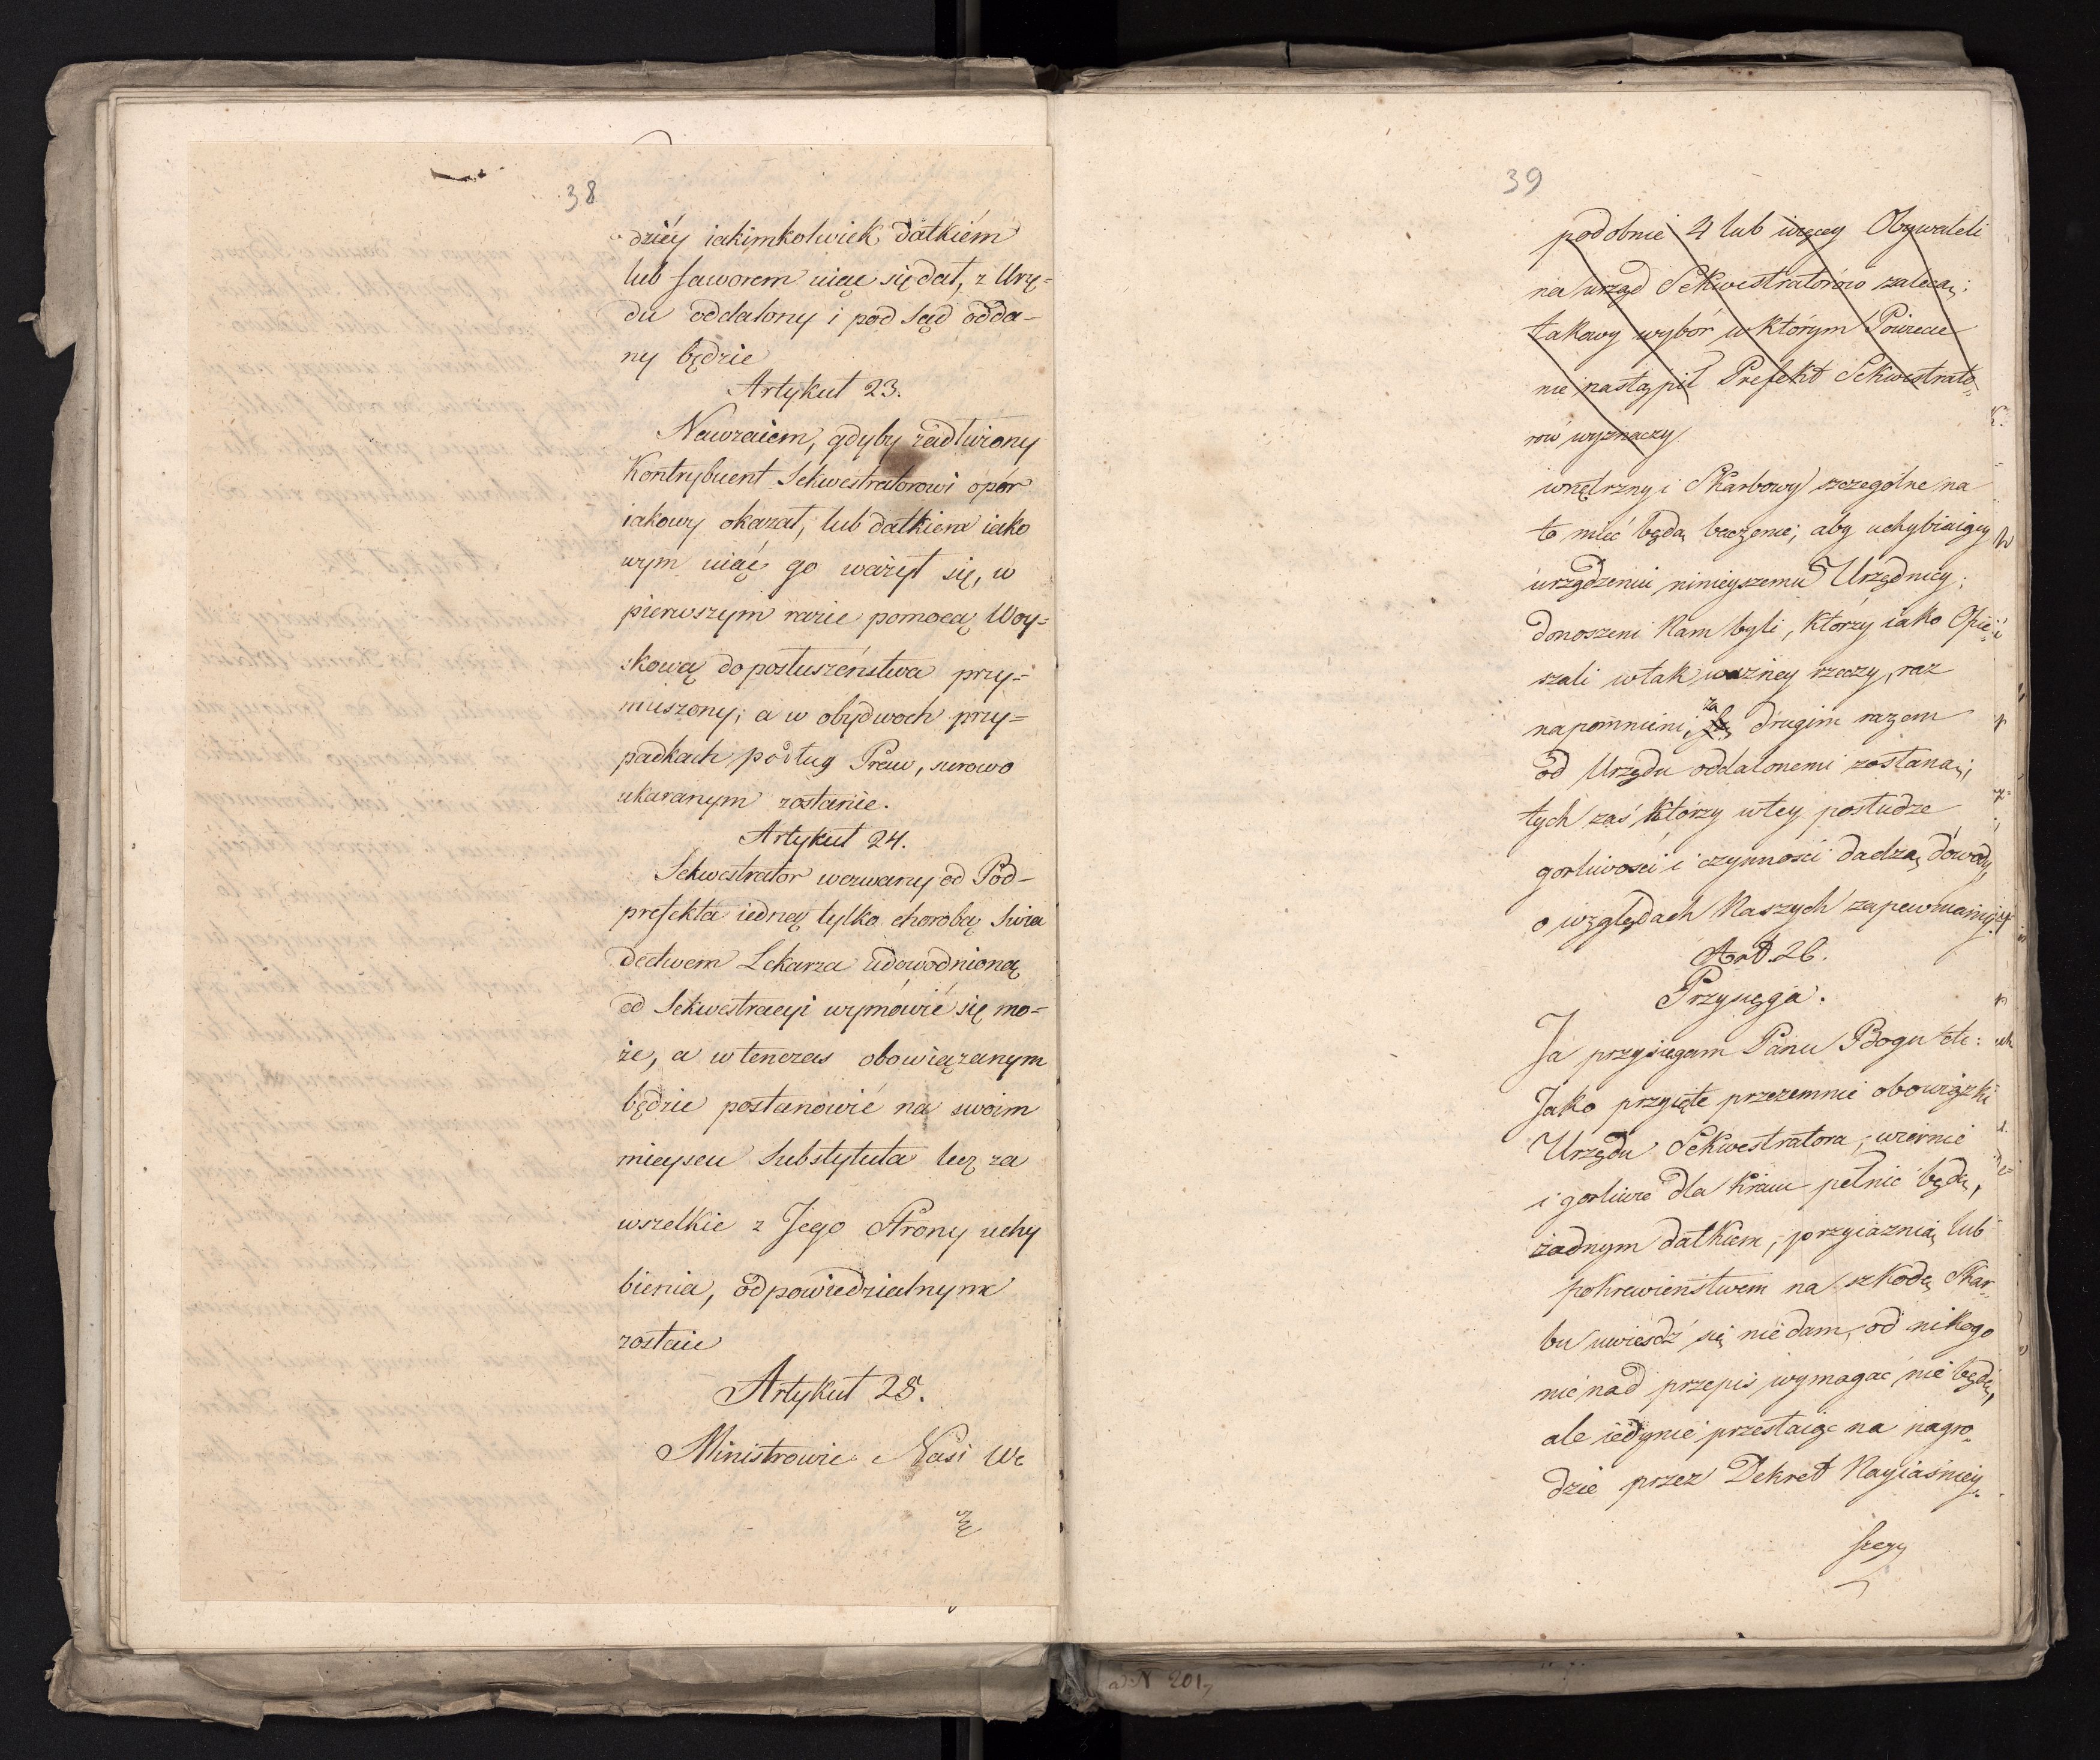 38
dziéy iakimkolwiek datkiém
lub faworem uiąć się dał, z Urzę=
du oddalony i pod Sąd odda-
ny będzie
Artykuł 23.
Nawzaiem, gdyby zadłużony
Kontrybuent Sekwestratorowi opór
iakowy okazał, lub datkiem iako
wym uiąć go ważył się, w
pierwszym razie pomocą Woy=
skową do posłuszeństwa przy=
muszony; a w obydwoch przy=
padkach podług Praw, surowo
ukaranym zostanie.
Artykuł 24.
Sekwestrator wezwany od Pod-
prefekta iedną tylko chorobą świa
dectwem Lekarza udowodnioną
od Sekwestracyi wymówić się mo=
że, a wtenczas obowiązanym
będzie postanowić na swoim
mieyscu Substytuta lecz za
wszelkie z Jego Strony uchy
bienia, odpowiedzialnym
zostaie
Artykuł 25.
Ministrowie Nasi We
39
podobnie 4 lub więcey Obywateli
na urząd Sekwestratorów zalecą;
takowy wybór w którym Powiecie
nie nastąpił Prefekt Sekwestrato=
rów wyznaczy
wnętrzny i Skarbowy szczególne na
to mieć będą baczenie, aby uchybiaiący
urządzeniu ninieyszemu Urzędnicy,
donoszeni Nam byli, którzy iako Opie=
szali w tak ważney rzeczy, raz
napomnieni, za drugim razem
od Urzędu oddalonemi zostaną;
tych zaś którzy w tey posłudze
gorliwości i czynności dadzą dowody,
o względach Naszych zapewniamy.
Art. 26.
Przysięga.
Ja przysięgam Panu Bogu etc:
Jako przyięte przezemnie obowiązki
Urzędu Sekwestratora, wiernie
i gorliwie dla Kraiu pełnić będę,
żadnym datkiem, przyiaźnią lub
pokrewieństwem na szkodę Skar=
bu uwieśdź się nie dam, od nikogo
nic nad przepis wymagać nie będę,
ale iedynie przestaiąc na nagro=
dzie przez Dekret Nayiaśniey=
szego
ad N 201,